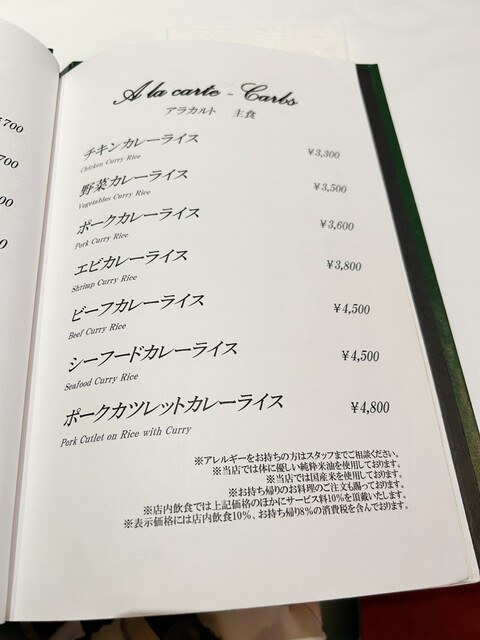 A la carte - Carbs
アラカルト 主食
チキンカレーライス ¥3,300
Chicken Curry Rice
野菜カレーライス ¥3,500
Vegetables Curry Rice
ポークカレーライス ¥3,600
Pork Curry Rice
エビカレーライス ¥3,800
Shrimp Curry Rice
ビーフカレーライス ¥4,500
Beef Curry Rice
シーフードカレーライス ¥4,500
Seafood Curry Rice
ポークカツレットカレーライス ¥4,800
Pork Cutlet on Rice with Curry
※アレルギーをお持ちの方はスタッフまでご相談ください。
※当店では体に優しい純粋米油を使用しております。
※当店では国産米を使用しております。
※お持ち帰りのお料理のご注文も賜っております。
※店内飲食では上記価格のほかにサービス料10%を頂戴いたします。
※表示価格には店内飲食10%、お持ち帰り8%の消費税を含んでおります。